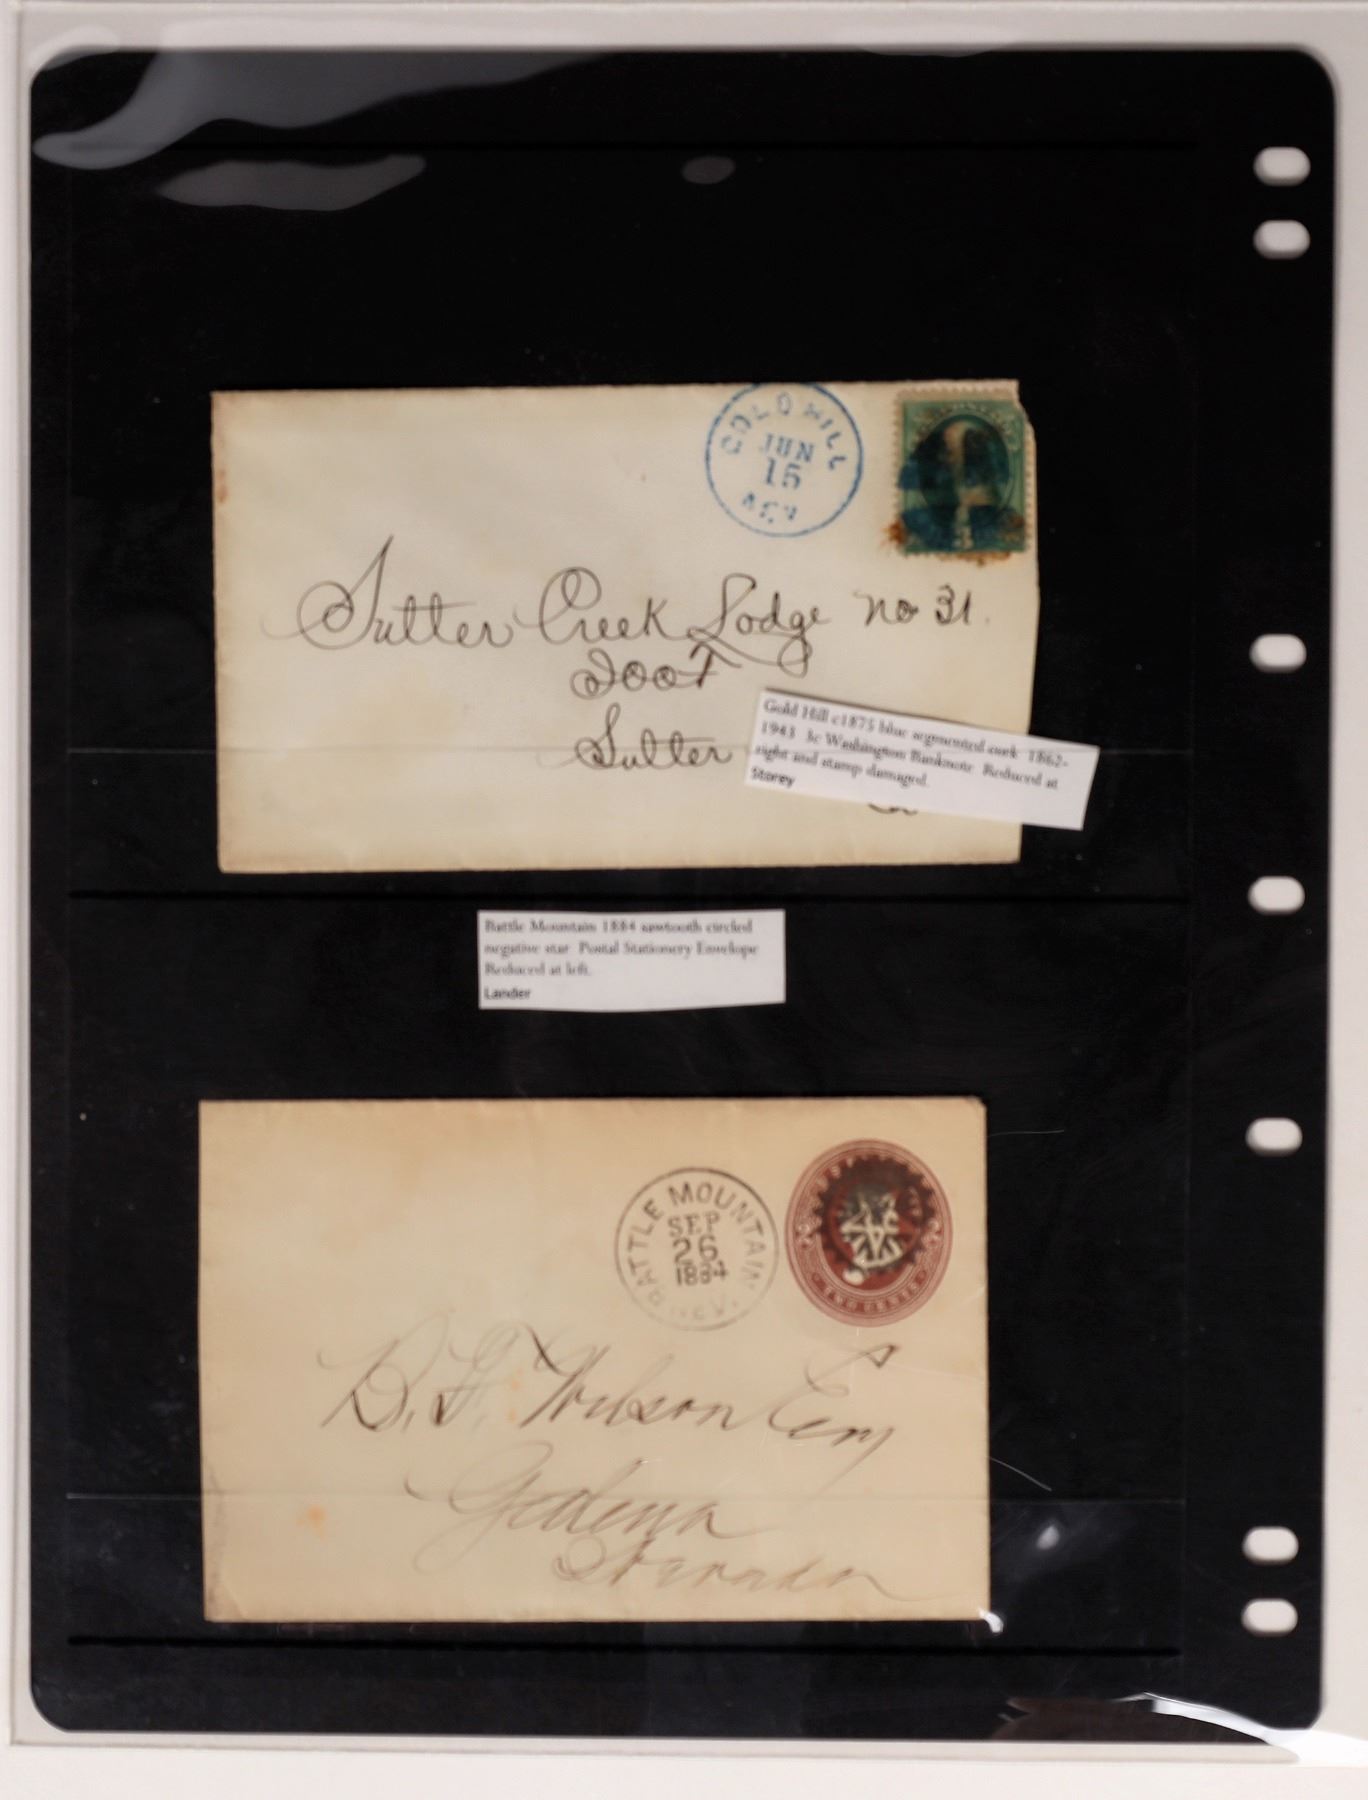 GOLD HILL
JUN
15
NEV
3
Sutter Creek Lodge No 31.
IOOF
Sutter
Gold Hill c1875 blue segmented cork 1862-
1943 3c Washington Banknote Reduced at
right and stamp damaged.
Storey
Battle Mountain 1884 sawtooth circled
negative star Postal Stationery Envelope
Reduced at left.
Lander
BATTLE MOUNTAIN
SEP
26
1884
NEV.
TWO CENTS
B. F. Wilson Esq
Galena
Nevada